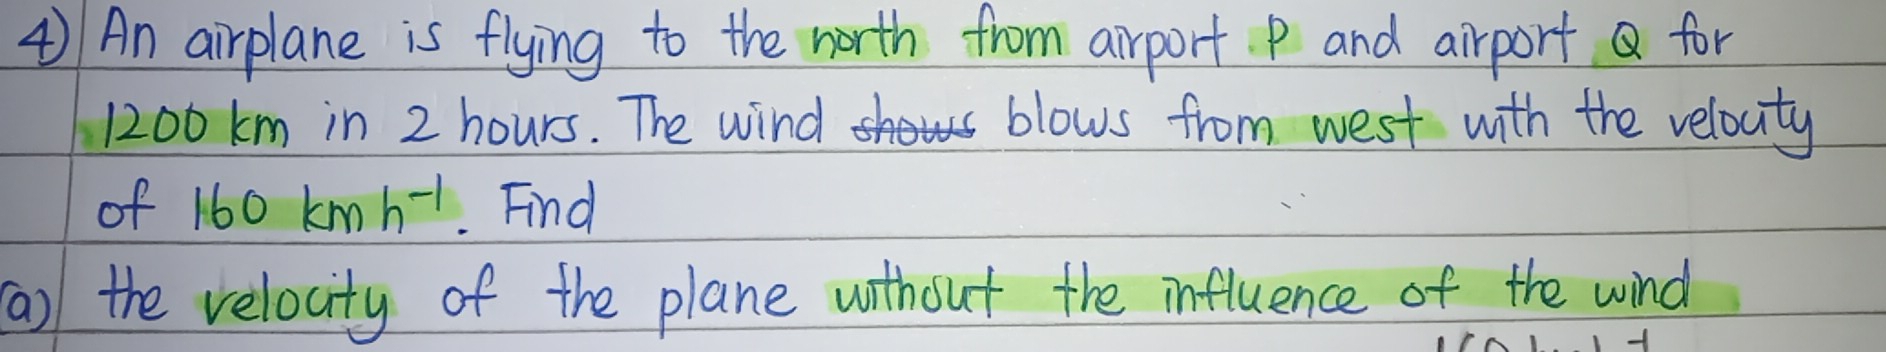 4) An airplane is flying to the north from airport P and airport Q for
1200 km in 2 hours. The wind shows blows from west with the velocity
of 160 km h⁻¹. Find
(a) the velocity of the plane without the influence of the wind